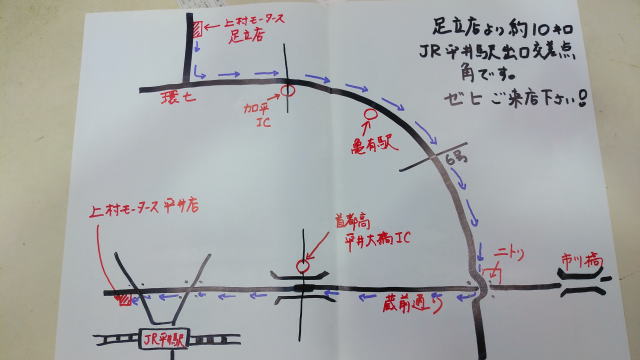 上村モータース
足立店
足立店より約10キロ
JR平井駅出口交差点
角です。
ゼヒご来店下さい!
環七
加平
IC
亀有駅
6号
上村モータース平井店
首都高
平井大橋IC
ニトリ
市川橋
蔵前通り
JR平井駅